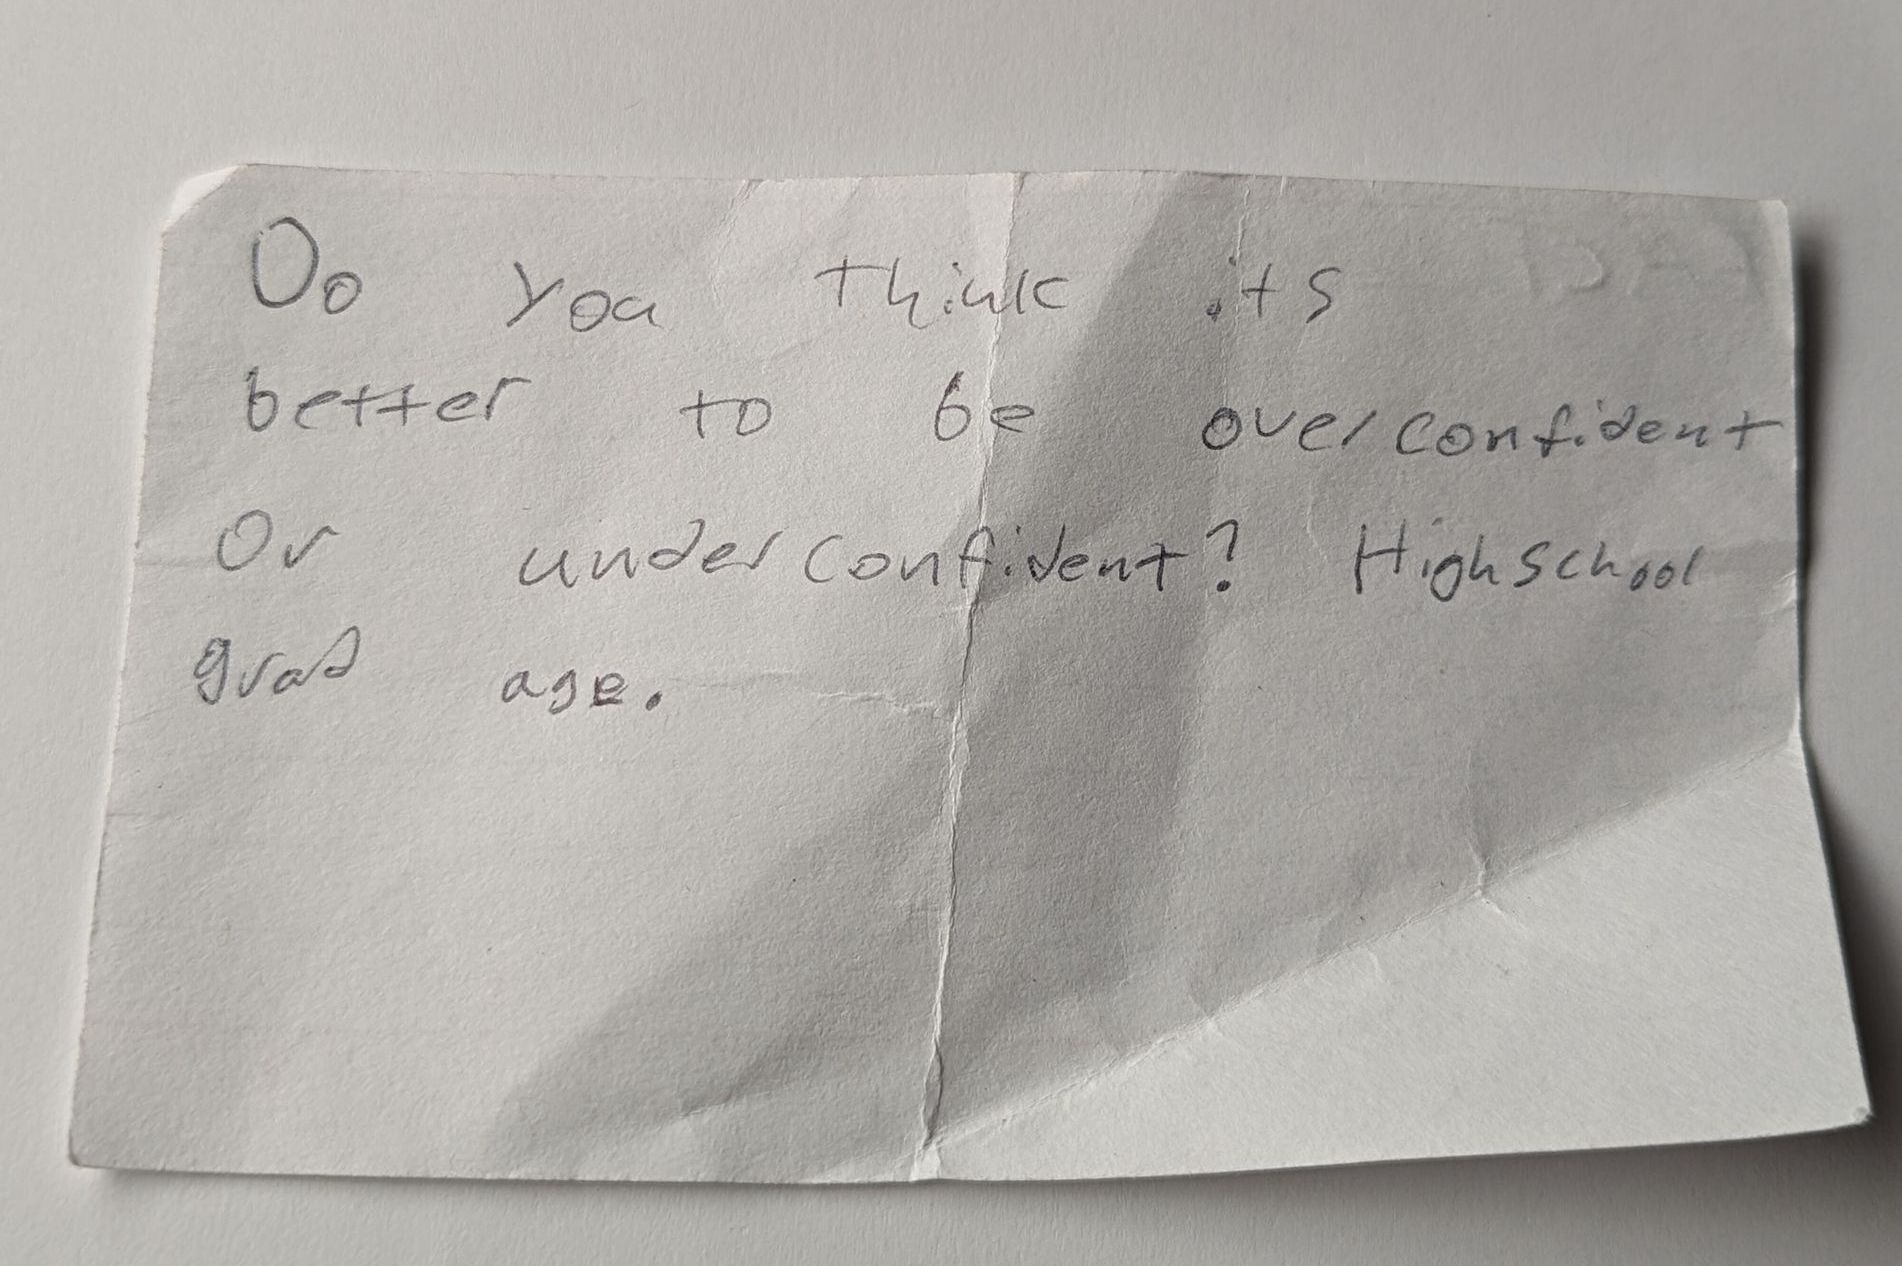 Do you think its
better to be overconfident
Or underconfident? Highschool
grad age.